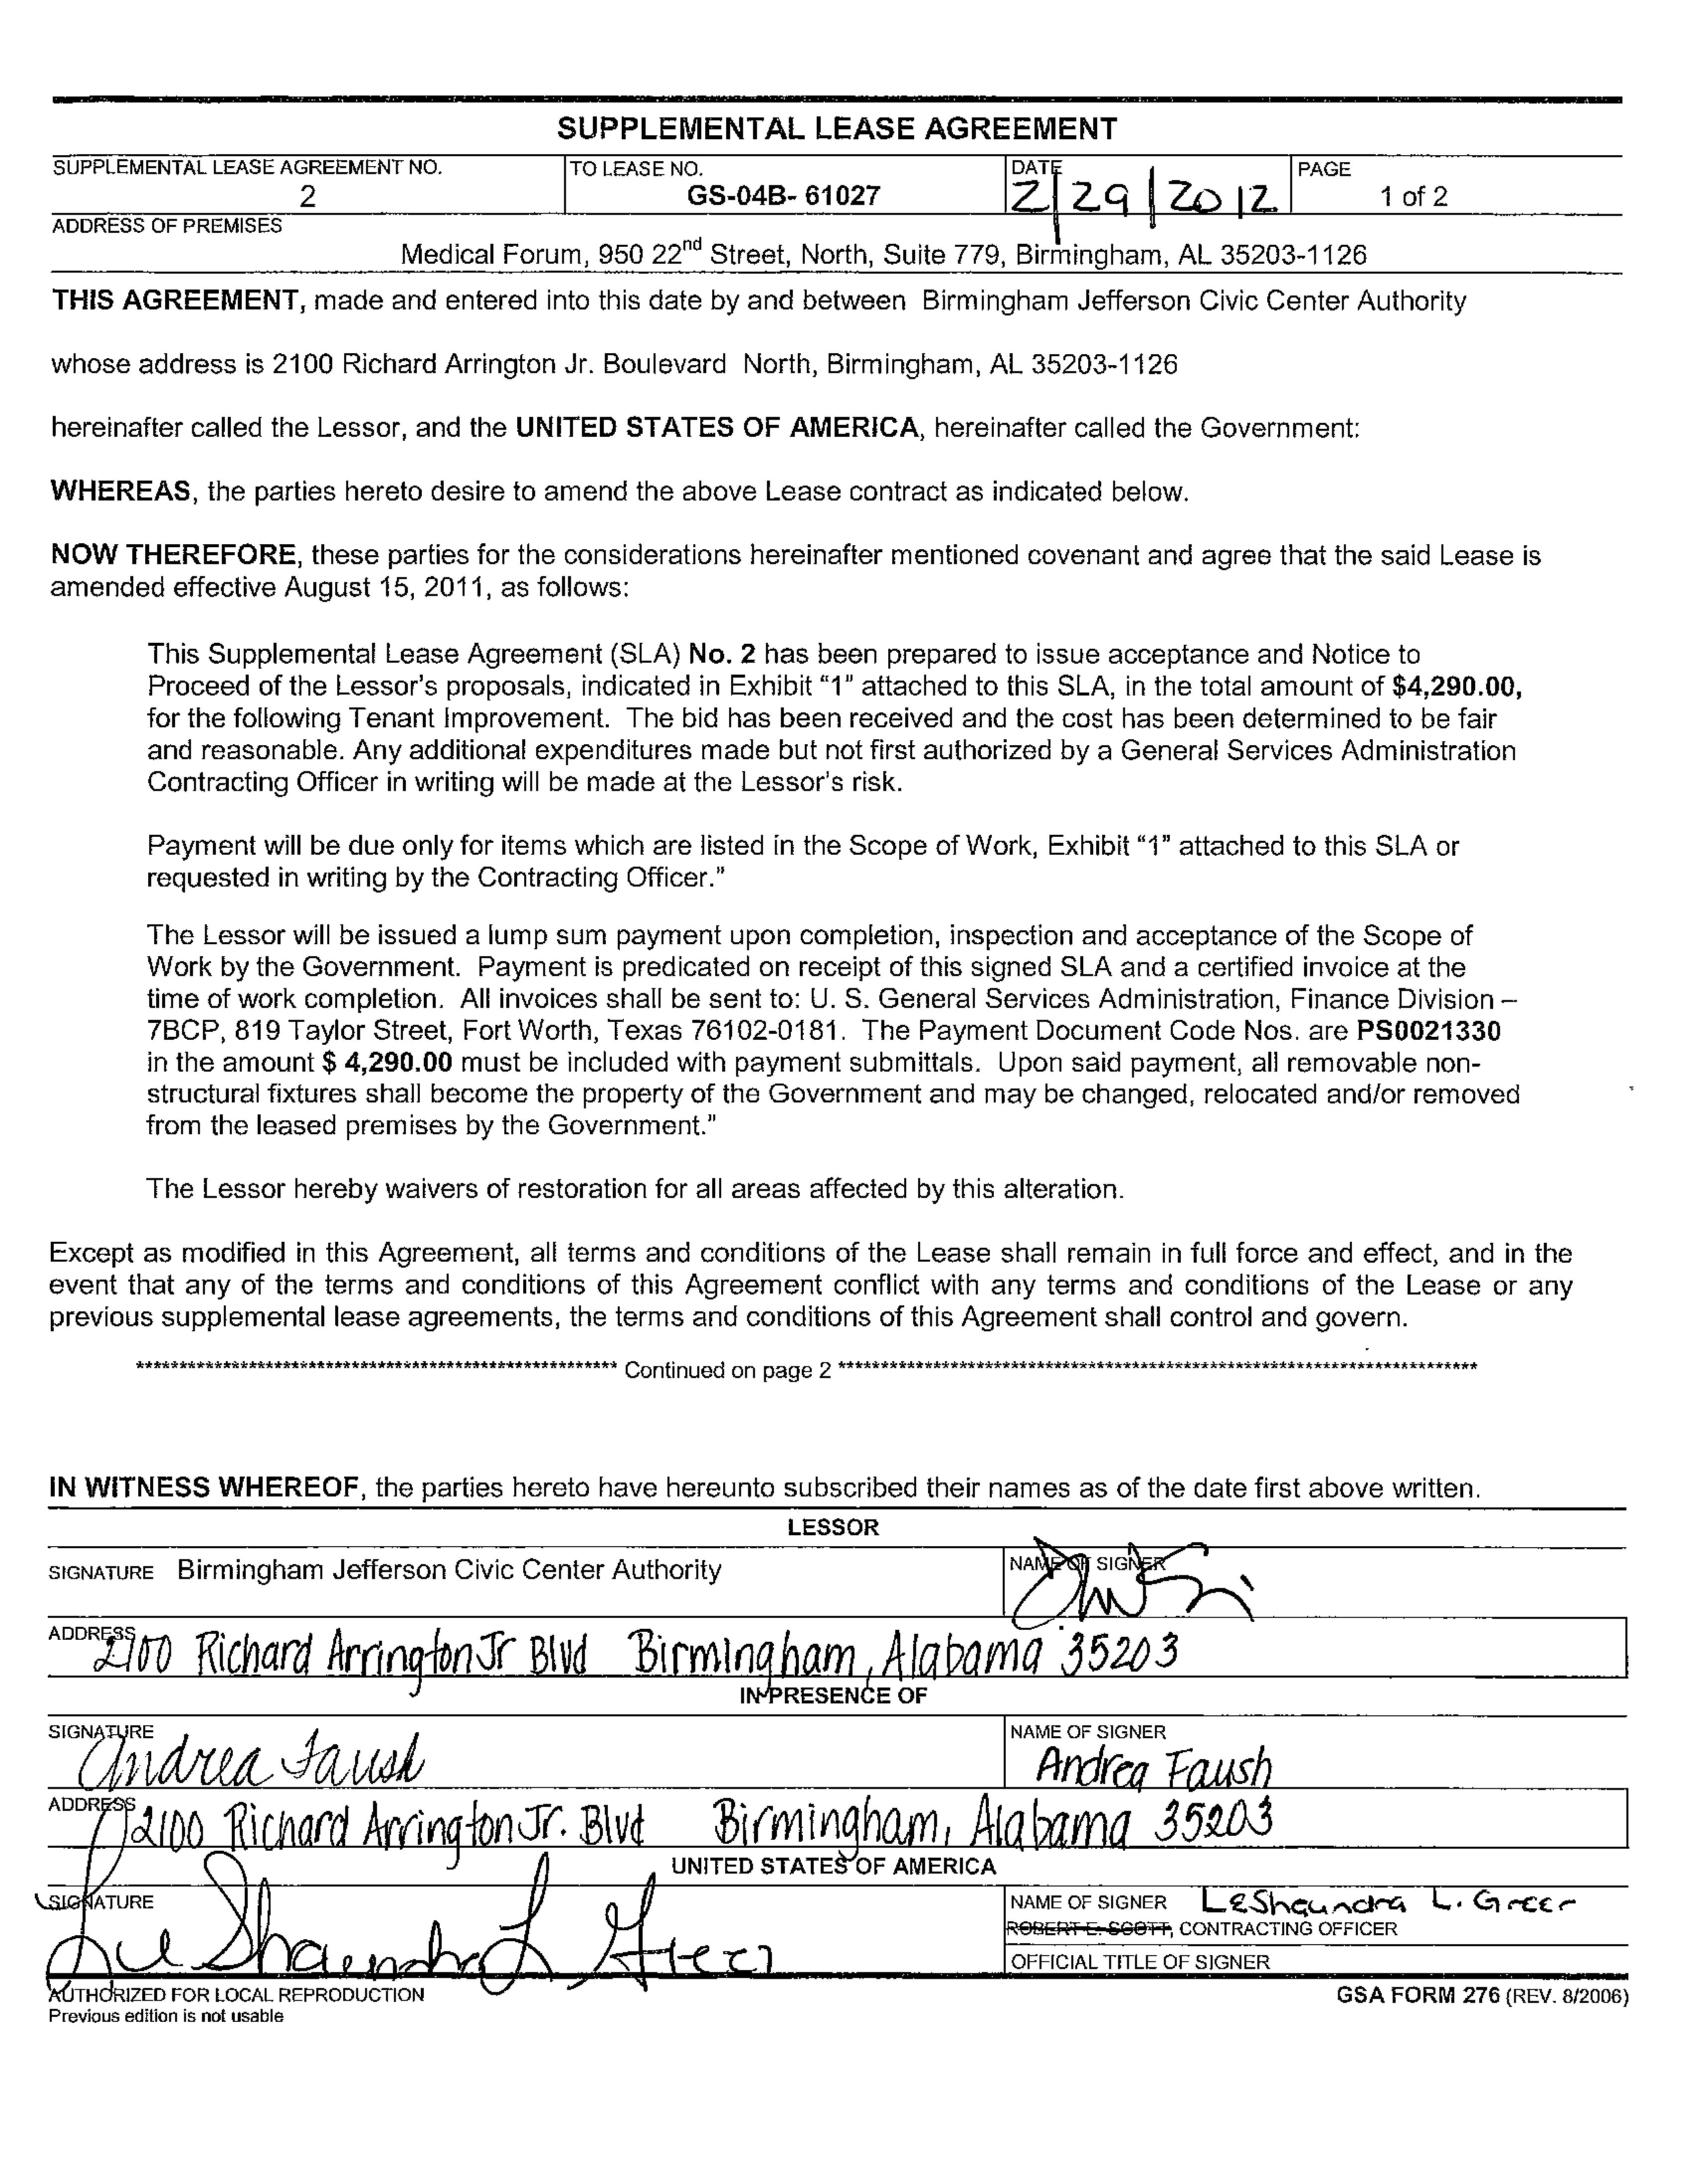 SUPPLEMENTAL LEASE AGREEMENT
SUPPLEMENTAL LEASE AGREEMENT NO.
2
TO LEASE NO.
GS-04B- 61027
DATE
2/29/2012
PAGE
1 of 2
ADDRESS OF PREMISES
Medical Forum, 950 22nd Street, North, Suite 779, Birmingham, AL 35203-1126
THIS AGREEMENT, made and entered into this date by and between Birmingham Jefferson Civic Center Authority
whose address is 2100 Richard Arrington Jr. Boulevard North, Birmingham, AL 35203-1126
hereinafter called the Lessor, and the UNITED STATES OF AMERICA, hereinafter called the Government:
WHEREAS, the parties hereto desire to amend the above Lease contract as indicated below.
NOW THEREFORE, these parties for the considerations hereinafter mentioned covenant and agree that the said Lease is
amended effective August 15, 2011, as follows:
This Supplemental Lease Agreement (SLA) No. 2 has been prepared to issue acceptance and Notice to
Proceed of the Lessor's proposals, indicated in Exhibit "1" attached to this SLA, in the total amount of $4,290.00,
for the following Tenant Improvement. The bid has been received and the cost has been determined to be fair
and reasonable. Any additional expenditures made but not first authorized by a General Services Administration
Contracting Officer in writing will be made at the Lessor's risk.
Payment will be due only for items which are listed in the Scope of Work, Exhibit "1" attached to this SLA or
requested in writing by the Contracting Officer."
The Lessor will be issued a lump sum payment upon completion, inspection and acceptance of the Scope of
Work by the Government. Payment is predicated on receipt of this signed SLA and a certified invoice at the
time of work completion. All invoices shall be sent to: U. S. General Services Administration, Finance Division –
7BCP, 819 Taylor Street, Fort Worth, Texas 76102-0181. The Payment Document Code Nos. are PS0021330
in the amount $ 4,290.00 must be included with payment submittals. Upon said payment, all removable non-
structural fixtures shall become the property of the Government and may be changed, relocated and/or removed
from the leased premises by the Government."
The Lessor hereby waivers of restoration for all areas affected by this alteration.
Except as modified in this Agreement, all terms and conditions of the Lease shall remain in full force and effect, and in the
event that any of the terms and conditions of this Agreement conflict with any terms and conditions of the Lease or any
previous supplemental lease agreements, the terms and conditions of this Agreement shall control and govern.
******************************************************** Continued on page 2 **************************************************************************
IN WITNESS WHEREOF, the parties hereto have hereunto subscribed their names as of the date first above written.
LESSOR
SIGNATURE Birmingham Jefferson Civic Center Authority
NAME OF SIGNER
ADDRESS
2100 Richard Arrington Jr Blvd Birmingham, Alabama 35203
IN PRESENCE OF
SIGNATURE
Andrea Faush
NAME OF SIGNER
Andrea Faush
ADDRESS
2100 Richard Arrington Jr. Blvd Birmingham, Alabama 35203
UNITED STATES OF AMERICA
SIGNATURE
LeShaundra L Greer
NAME OF SIGNER LeShaundra L. Greer
ROBERT E. SCOTT, CONTRACTING OFFICER
OFFICIAL TITLE OF SIGNER
AUTHORIZED FOR LOCAL REPRODUCTION
Previous edition is not usable
GSA FORM 276 (REV. 8/2006)